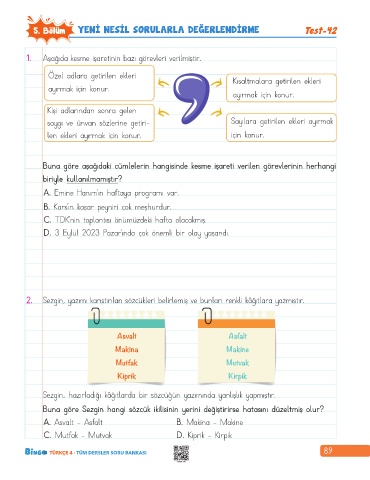 5. Bölüm YENİ NESİL SORULARLA DEĞERLENDİRME Test-42
1. Aşağıda kesme işaretinin bazı görevleri verilmiştir.
Özel adlara getirilen ekleri
ayırmak için konur.
Kısaltmalara getirilen ekleri
ayırmak için konur.
Kişi adlarından sonra gelen
saygı ve ünvan sözlerine getiri-
len ekleri ayırmak için konur.
Sayılara getirilen ekleri ayırmak
için konur.
Buna göre aşağıdaki cümlelerin hangisinde kesme işareti verilen görevlerinin herhangi
biriyle kullanılmamıştır?
A. Emine Hanım'ın haftaya programı var.
B. Kars'ın kaşar peyniri çok meşhurdur.
C. TDK'nin toplantısı önümüzdeki hafta olacakmış.
D. 3 Eylül 2023 Pazar'ında çok önemli bir olay yaşandı.
2. Sezgin, yazımı karıştırılan sözcükleri belirlemiş ve bunları renkli kâğıtlara yazmıştır.
Asvalt
Makina
Mutfak
Kiprik
Asfalt
Makine
Mutvak
Kirpik
Sezgin, hazırladığı kâğıtlarda bir sözcüğün yazımında yanlışlık yapmıştır.
Buna göre Sezgin hangi sözcük ikilisinin yerini değiştirirse hatasını düzeltmiş olur?
A. Asvalt - Asfalt B. Makina - Makine
C. Mutfak - Mutvak D. Kiprik - Kirpik
BİNGO TÜRKÇE 4 - TÜM DERSLER SORU BANKASI 89